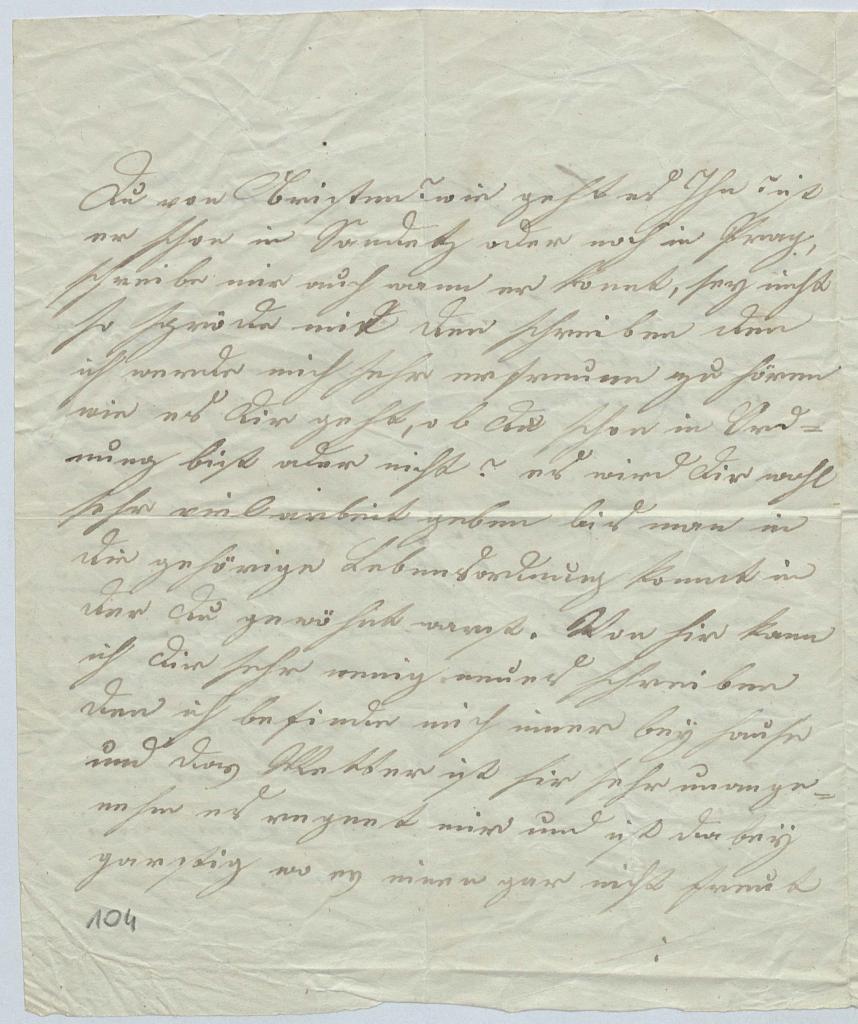 Du von Christen? wie geht es Ihn? ist
er schon in Sandetz oder noch in Prag,
schreibe mir auch wann er kömt, sey nicht
so spröde mit den schreiben den
ich werde mich sehr erfreuen zu hören
wie es dir geht, ob du schon in Ord=
nung bist oder nicht? es wird dir wohl
sehr viel arbeit geben bis man in
die gehörige Lebensordnung komt in
der du gewöhnt warst. Von hir kann
ich dir sehr wenig neues schreiben
den ich befinde mich imer bey hause
und das Wetter ist hir sehr unange=
nehm es regnet mir und ist dabey
garstig wo es einen gar nicht freut
104